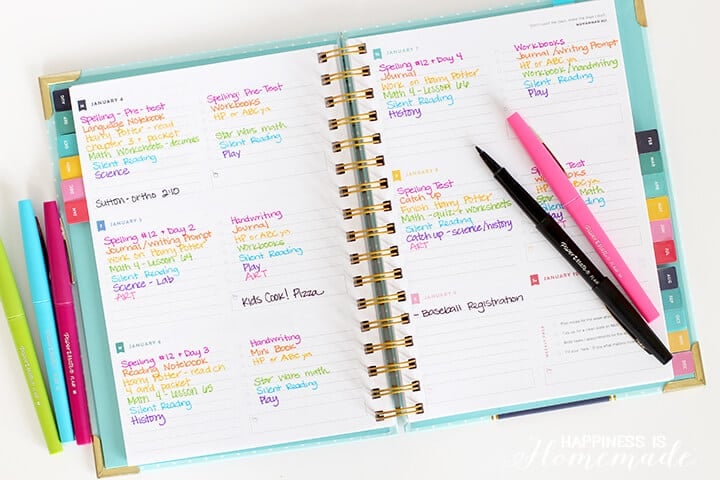 JANUARY 4
Spelling - Pre-test
Language Notebook
Harry Potter - read
Chapter 3 + packet
Math Worksheets - decimals
Silent Reading
Science
Sutton - ortho 2:10
Spelling - Pre-test
Workbooks
HP or ABC ya
Star Wars math
Silent Reading
Play
JANUARY 5
Spelling #12 + Day 2
Journal / Writing Prompt
Work on Harry Potter
Math 4 - Lesson 64
Silent Reading
Science - Lab
ART
Handwriting
Journal
HP or ABC ya
Workbooks
Silent Reading
Play
ART
Kids Cook! Pizza
JANUARY 6
Spelling #12 + Day 3
Reading Notebook
Harry Potter - read ch
4 and packet
Math 4 - Lesson 65
Silent Reading
History
Handwriting
Mini Book
HP or ABC ya
Star Wars math
Silent Reading
Play
MUHAMMAD ALI
JANUARY 7
Spelling #12 + Day 4
Journal
Work on Harry Potter
Math 4 - Lesson 66
Silent Reading
History
Workbooks
Journal / Writing Prompt
HP or ABC ya
Workbook / handwriting
Silent Reading
Play
JANUARY 8
Spelling Test
Catch up
Finish Harry Potter
Math - quiz + worksheets
Silent Reading
Catch up - science/history
ART
Spelling Test
Workbooks
HP or ABC ya
Star Wars Math
Silent
Play
ART
JANUARY 9
- Baseball Registration
JANUARY 10
HAPPINESS IS
Homemade